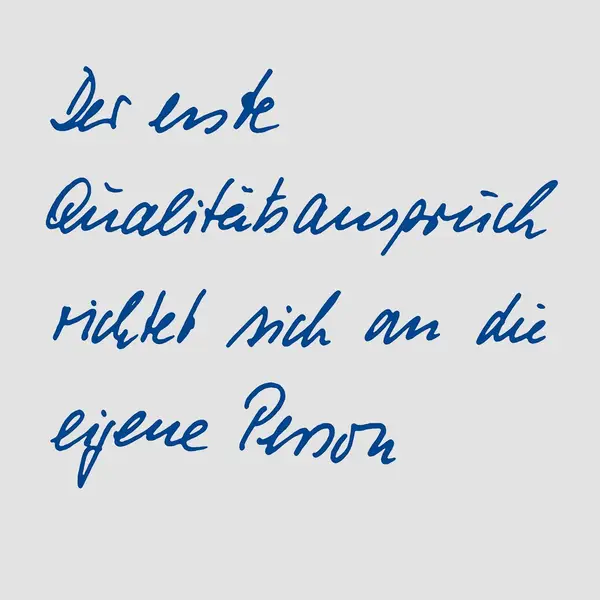 Der erste
Qualitätsanspruch
richtet sich an die
eigene Person